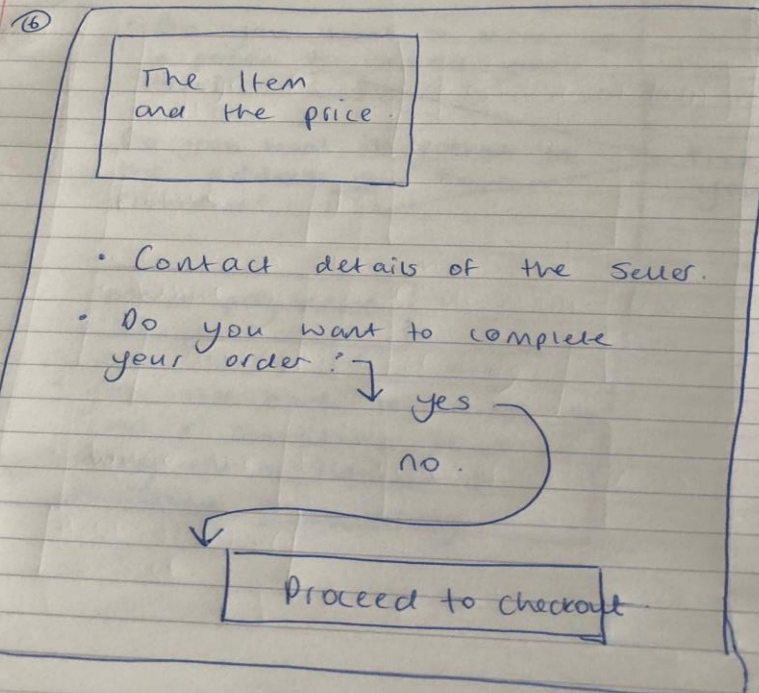 16
The Item
and the price.
• Contact details of the seller.
• Do you want to complete
your order?
yes
no.
Proceed to checkout